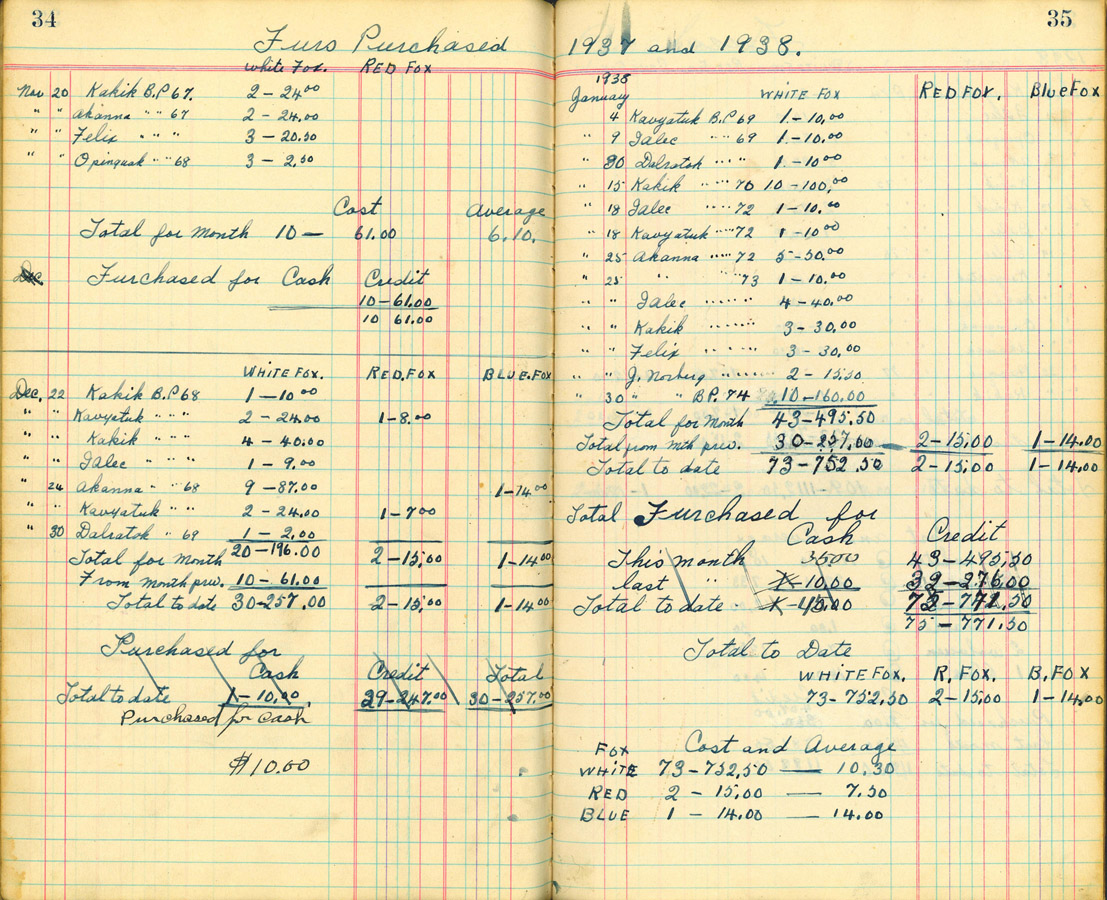 34
Furs Purchased
White Fox. RED FOX
Nov 20 Kakik B.P 67. 2 - 24.00
" " Akanna " " 67 2 - 24.00
" " Felix " " " 3 - 20.50
" " Opinguak " " 68 3 - 2.50
Cost Average
Total for Month 10 — 61.00 6.10.
Dec. Furchased for Cash Credit
10 - 61.00
10 61.00
WHITE FOX. RED.FOX BLUE.FOX
Dec. 22 Kakik B.P 68 1 - 10.00
" " Kavyatuk " " " 2 - 24.00 1 - 8.00
" " Kakik " " " 4 - 40.00
" " Jalec " " " 1 - 9.00
" 24 Akanna " " 68 9 - 87.00 1 - 14.00
" " Kavyatuk " " 2 - 24.00 1 - 7.00
" 30 Dalratok " 69 1 - 2.00
Total for Month 20 - 196.00 2 - 15.00 1 - 14.00
From month prev. 10 - 61.00
Total to date 30 - 257.00 2 - 15.00 1 - 14.00
Purchased for
Cash Credit Total
Total to date 1 - 10.00 29 - 247.00 30 - 257.00
Purchased for Cash
$10.00
35
1937 and 1938.
1938
January WHITE FOX RED FOX. Blue FOX
4 Kavyatuk B.P 69 1 - 10.00
" 9 Jalec " 69 1 - 10.00
" 30 Dalratok " " " 1 - 10.00
" 15 Kakik " " " 70 10 - 100.00
" 18 Jalec " " " 72 1 - 10.00
" 18 Kavyatuk " " " 72 1 - 10.00
" 25 Akanna " " " 72 5 - 50.00
" 25 " " " 73 1 - 10.00
" " Jalec " " " 4 - 40.00
" " Kakik " " " 3 - 30.00
" " Felix " " " 3 - 30.00
" " J. Norberg " " " 2 - 15.50
" 30 " " B.P. 74 10 - 160.00
Total for Month 43 - 495.50
Total from mth prev. 30 - 257.00 2 - 15.00 1 - 14.00
Total to date 73 - 752.50 2 - 15.00 1 - 14.00
Total Furchased for
Cash Credit
This month 35.00 43 - 495.50
last " 10.00 276.00
Total to date 45.00 771.50
75 - 771.50
Total to Date
WHITE FOX. R. FOX. B. FOX
73 - 752.50 2 - 15.00 1 - 14.00
FOX Cost and Average
WHITE 73 - 752.50 — 10.30
RED 2 - 15.00 — 7.50
BLUE 1 - 14.00 — 14.00